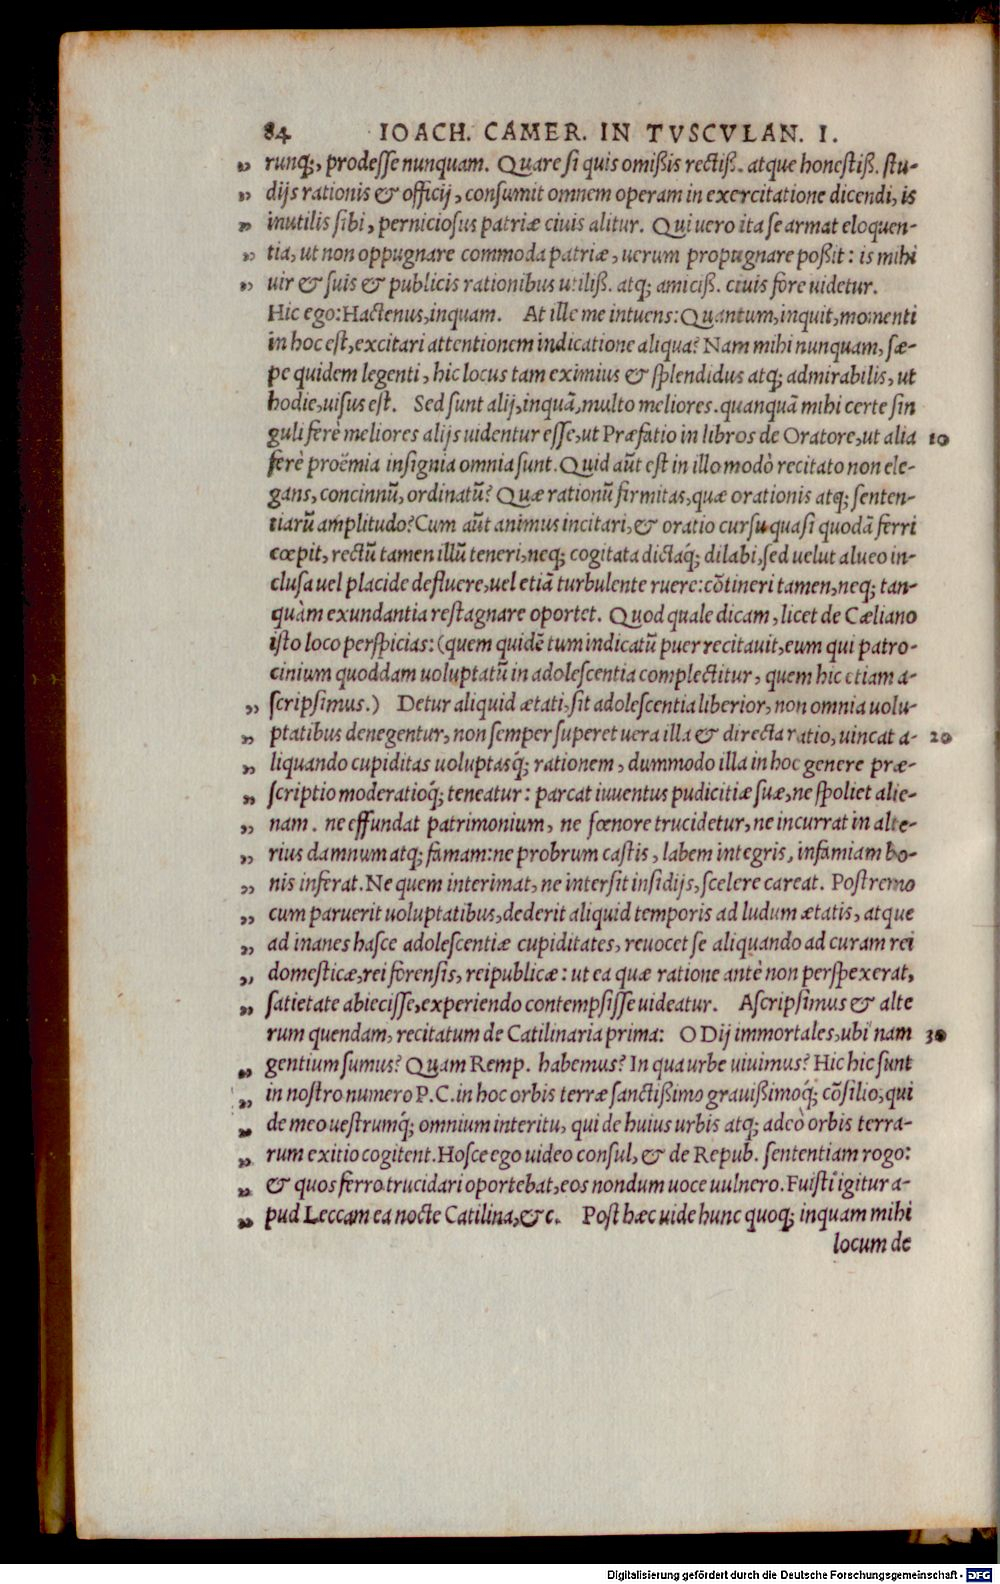 84 IOACH. CAMER. IN TVSCVLAN. I.
„ runq́;, prodesse nunquam. Quare si quis omißis rectiß. atque honestiß. stu-
„ dijs rationis & officij, consumit omnem operam in exercitatione dicendi, is
„ inutilis sibi, perniciosus patriæ ciuis alitur. Qui uero ita se armat eloquen-
„ tia, ut non oppugnare commoda patriæ, uerum propugnare poßit: is mihi
„ uir & suis & publicis rationibus utiliß. atq; amiciß. ciuis fore uidetur.
Hic ego: Hactenus, inquam. At ille me intuens: Quantum, inquit, momenti
in hoc est, excitari attentionem indicatione aliqua? Nam mihi nunquam, sæ-
pe quidem legenti, hic locus tam eximius & splendidus atq; admirabilis, ut
hodie, uisus est. Sed sunt alij, inquã, multo meliores. quanquã mihi certe sin
guli ferè meliores alijs uidentur esse, ut Præfatio in libros de Oratore, ut alia 10
ferè proëmia insignia omnia sunt. Quid aũt est in illo modò recitato non ele-
gans, concinnũ, ordinatũ? Quæ rationũ firmitas, quæ orationis atq; senten-
tiarũ amplitudo? Cum aũt animus incitari, & oratio cursu quasi quodã ferri
cœpit, rectũ tamen illũ teneri, neq; cogitata dictaq́; dilabi, sed uelut alueo in-
clusa uel placide defluere, uel etiã turbulente ruere: cõtineri tamen, neq; tan-
quàm exundantia restagnare oportet. Quod quale dicam, licet de Cæliano
isto loco perspicias: (quem quidẽ tum indicatũ puer recitauit, eum qui patro-
cinium quoddam uoluptatũ in adolescentia complectitur, quem hic etiam a-
„ scripsimus.) Detur aliquid ætati, sit adolescentia liberior, non omnia uolu-
„ ptatibus denegentur, non semper superet uera illa & directa ratio, uincat a- 20
„ liquando cupiditas uoluptasq́; rationem, dummodo illa in hoc genere præ-
„ scriptio moderatioq́; teneatur: parcat iuuentus pudicitiæ suæ, ne spoliet alie-
„ nam. ne effundat patrimonium, ne fœnore trucidetur, ne incurrat in alte-
„ rius damnum atq; famam: ne probrum castis, labem integris, infamiam bo-
„ nis inferat. Ne quem interimat, ne intersit insidijs, scelere careat. Postremo
„ cum paruerit uoluptatibus, dederit aliquid temporis ad ludum ætatis, atque
„ ad inanes hasce adolescentiæ cupiditates, reuocet se aliquando ad curam rei
„ domesticæ, rei forensis, reipublicæ: ut ea quæ ratione antè non perspexerat,
„ satietate abiecisse, experiendo contempsisse uideatur. Ascripsimus & alte
rum quendam, recitatum de Catilinaria prima: O Dij immortales, ubi nam 30
„ gentium sumus? Quam Remp. habemus? In qua urbe uiuimus? Hic hic sunt
„ in nostro numero P. C. in hoc orbis terræ sanctißimo grauißimoq́; cõsilio, qui
„ de meo uestrumq́; omnium interitu, qui de huius urbis atq; adeò orbis terra-
„ rum exitio cogitent. Hosce ego uideo consul, & de Repub. sententiam rogo:
„ & quos ferro trucidari oportebat, eos nondum uoce uulnero. Fuisti igitur a-
„ pud Leccam ea nocte Catilina, &c. Post hæc uide hunc quoq; inquam mihi
locum de
Digitalisierung gefördert durch die Deutsche Forschungsgemeinschaft - DFG